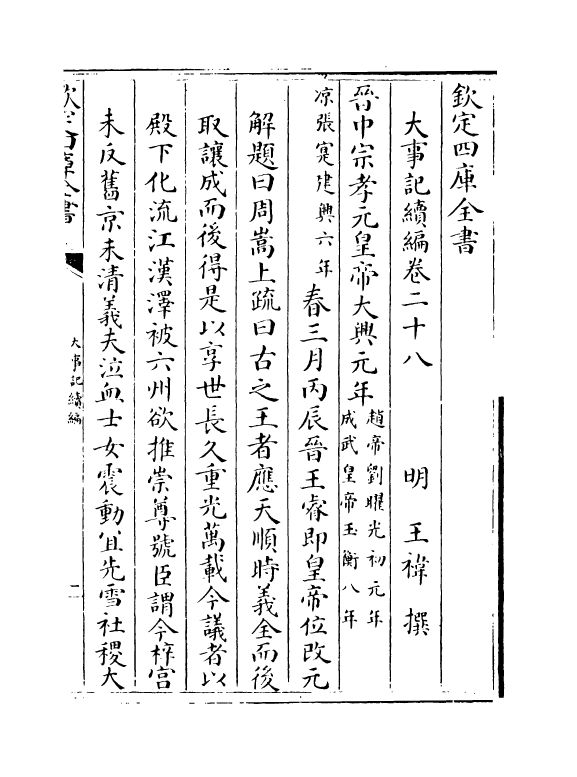 欽定四庫全書
大事記續編卷二十八　明　王禕　撰
晉中宗孝元皇帝大興元年趙帝劉曜光初元年
成武皇帝玉衡八年
凉張寔建興六年春三月丙辰晉王睿即皇帝位改元
解題曰周嵩上疏曰古之王者應天順時義全而後
取讓成而後得是以享世長久重光萬載今議者以
殿下化流江漢澤被六州欲推崇尊號臣謂今梓宫
未反舊京未清義夫泣血士女震動宜先雪社稷大
欽定四庫全書
大事記續編